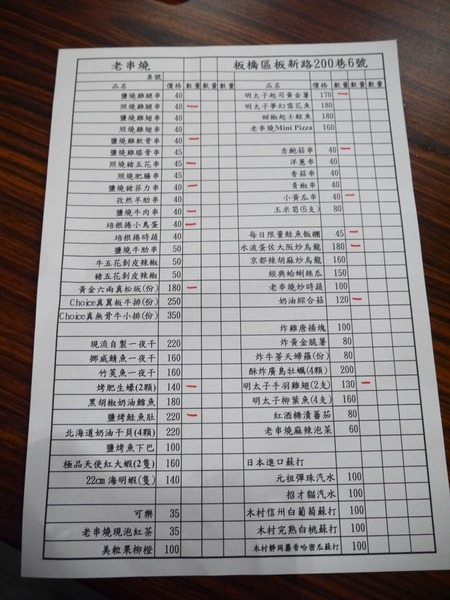 老串燒
板橋區板新路200巷6號
桌號
品名 價格 數量 數量 數量
鹽燒雞腿串 40
照燒雞腿串 40
鹽燒雞翅串 40
照燒雞翅串 40
鹽燒雞軟骨串 40
鹽燒雞腸串 45
照燒豬五花串 45
照燒肥腸串 45
鹽燒豬菲力串 40
孜然羊肋串 40
鹽燒牛肉串 40
培根捲小鳥蛋 40
培根捲時蔬 40
鹽燒牛肋串 50
牛五花剝皮辣椒 50
豬五花剝皮辣椒 50
黃金六兩真松坂(份) 180
Choice真翼板牛排(份) 250
Choice真無骨牛小排(份) 350
現流自製一夜干 220
挪威鯖魚一夜干 160
竹筴魚一夜干 160
烤肥生蠔(2顆) 140
黑胡椒奶油鱈魚 180
鹽烤鮭魚肚 220
北海道奶油干貝(4顆) 220
鹽烤魚下巴 100
極品天使紅大蝦(2隻) 160
22cm海明蝦(隻) 140
可樂 35
老串燒現泡紅茶 35
美粒果柳橙 100
品名 價格 數量 數量 數量
明太子起司黃金薯 170
明太子夢幻雪花魚 180
甜椒起士鮭魚 180
老串燒Mini Pizza 160
杏鮑菇串 40
洋蔥串 40
香菇串 40
青椒串 40
小黃瓜串 40
玉米筍(6支) 80
每日限量鮭魚飯糰 45
水波蛋佐大阪炒烏龍 180
京都辣胡麻炒烏龍 160
經典蛤蜊絲瓜 150
老串燒炒時蔬 100
奶油綜合菇 120
炸雞唐揚塊 100
炸黃金脆薯 80
炸牛蒡天婦羅(份) 80
酥炸廣島牡蠣(4顆) 200
明太子手羽雞翅(2支) 130
明太子柳葉魚(4支) 160
紅酒糖漬蕃茄 80
老串燒麻辣泡菜 60
日本進口蘇打
元祖彈珠汽水 100
招才貓汽水 100
木村信州白葡萄蘇打 100
木村完熟白桃蘇打 100
木村靜岡麝香哈密瓜蘇打 100